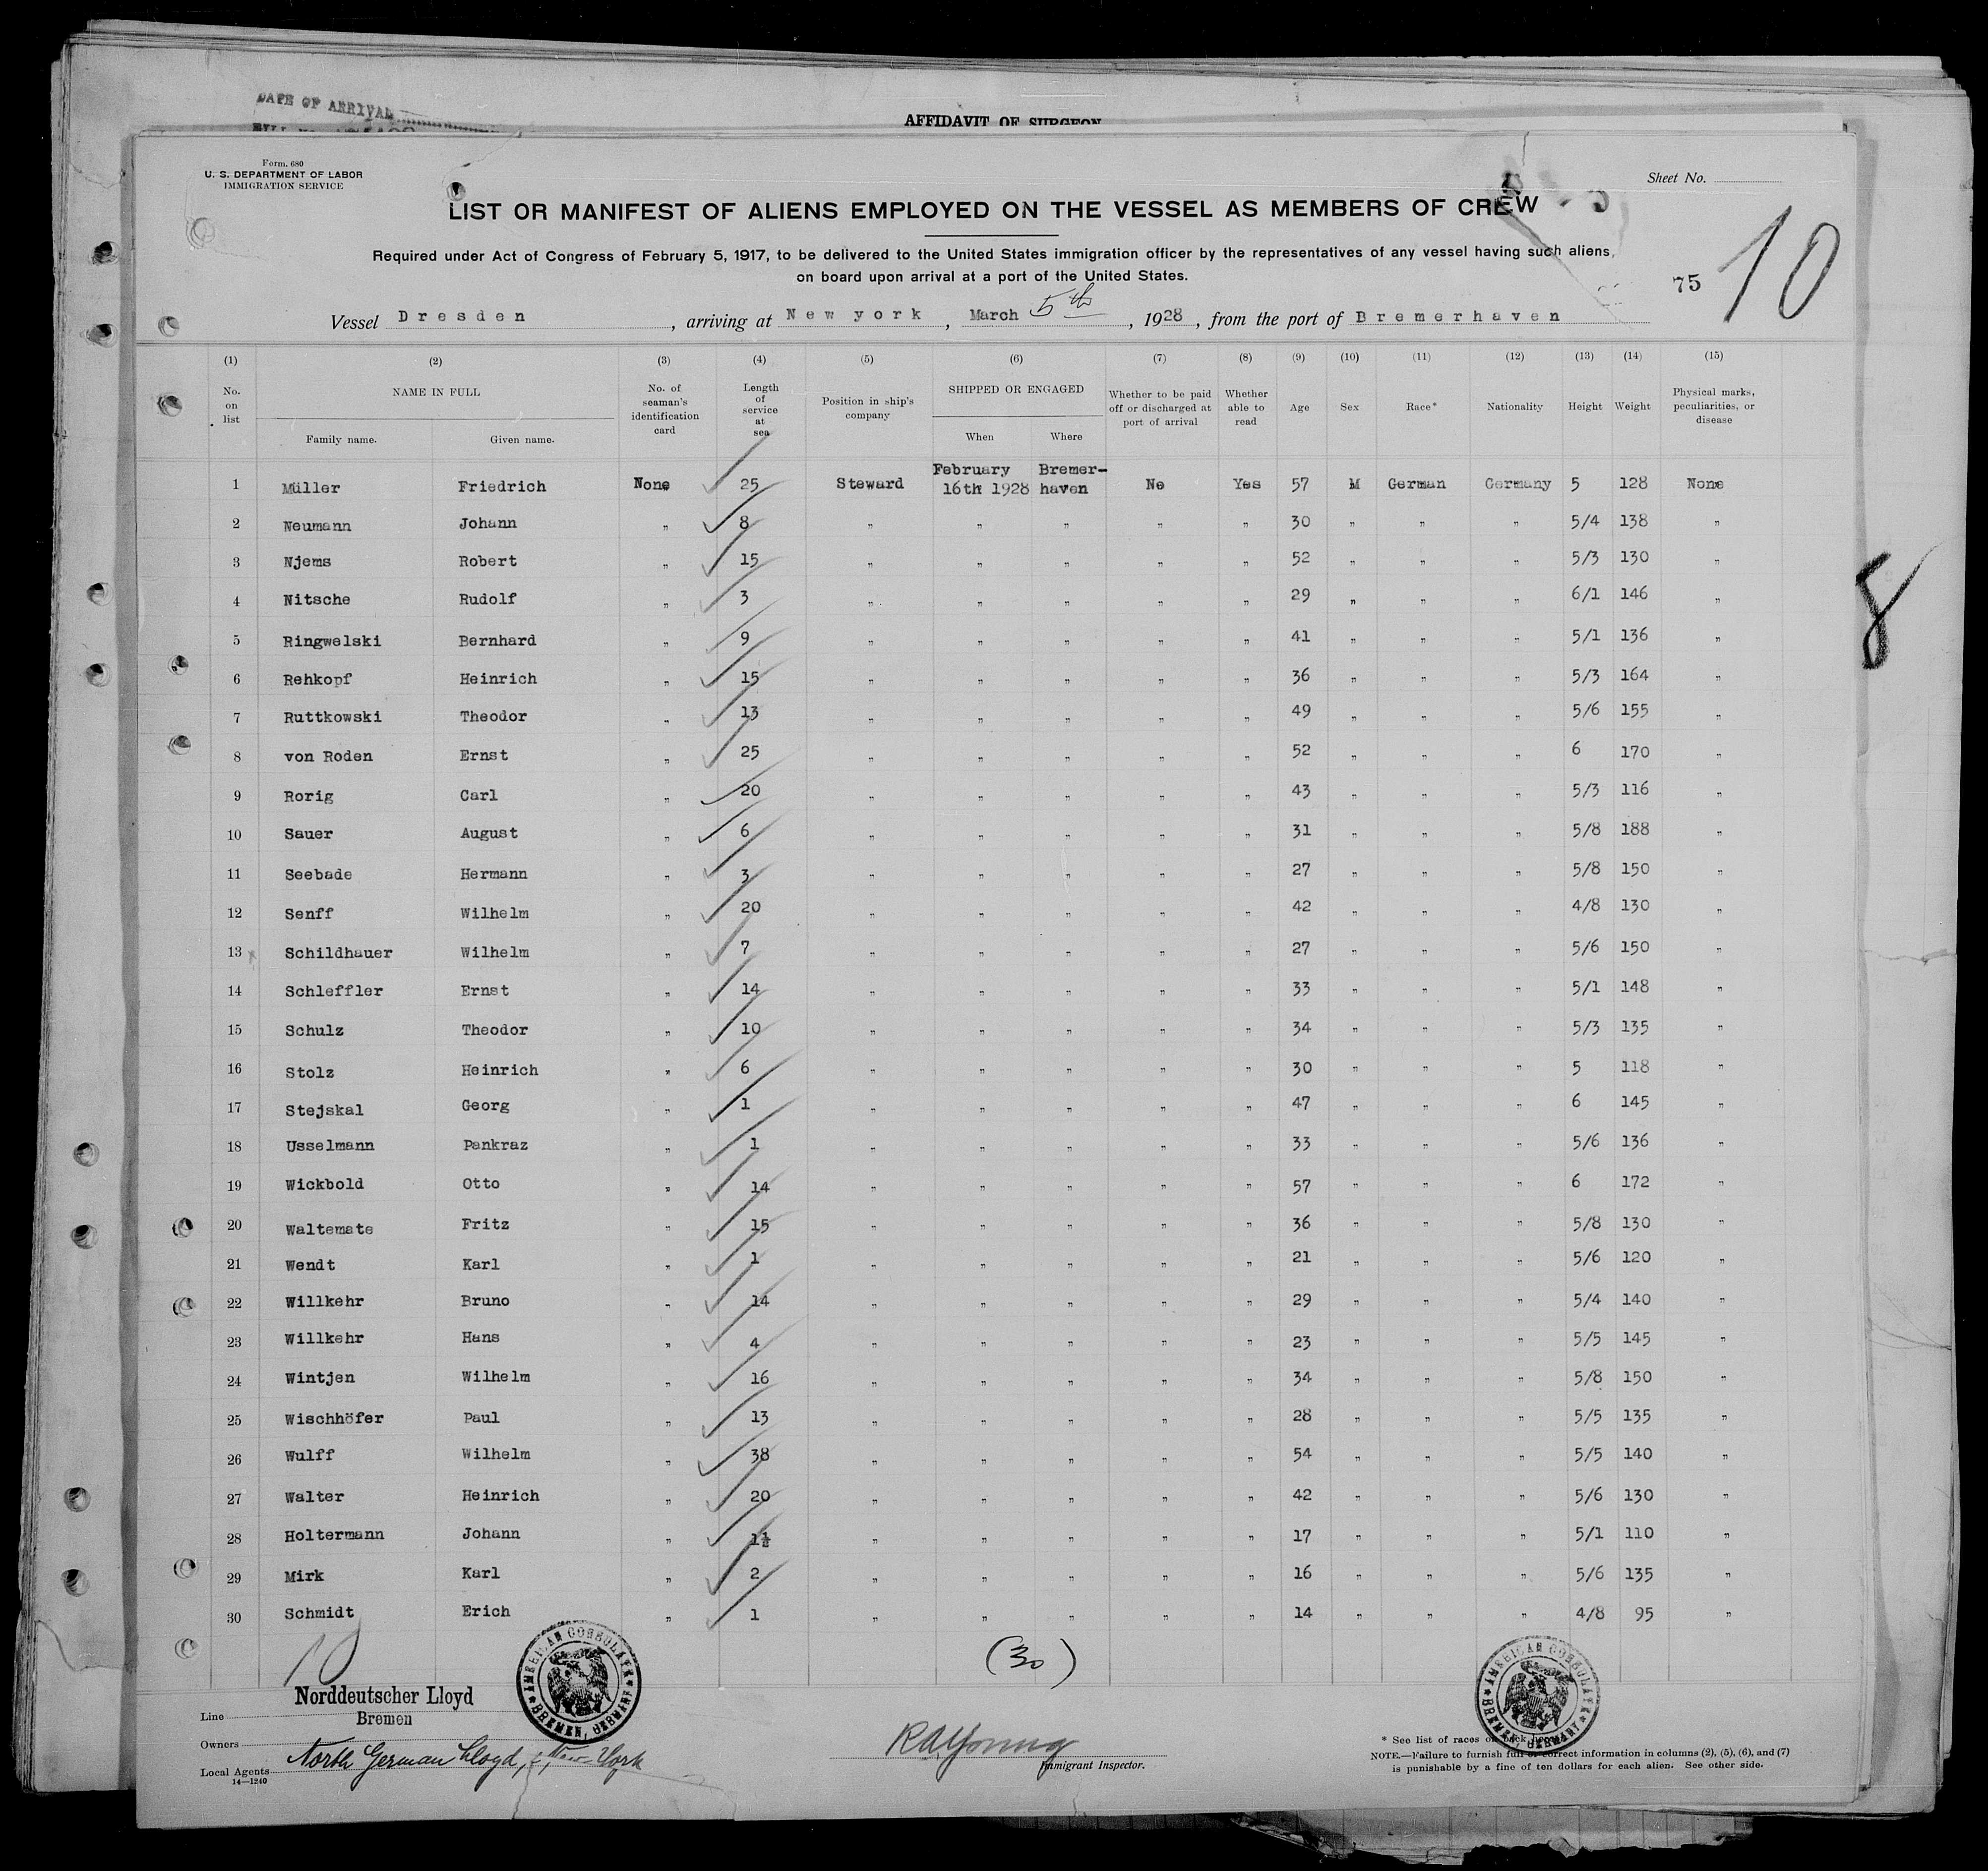 DATE OF ARRIVAL
AFFIDAVIT OF SURGEON
Form. 680
U. S. DEPARTMENT OF LABOR
IMMIGRATION SERVICE
Sheet No.
LIST OR MANIFEST OF ALIENS EMPLOYED ON THE VESSEL AS MEMBERS OF CREW
Required under Act of Congress of February 5, 1917, to be delivered to the United States immigration officer by the representatives of any vessel having such aliens,
on board upon arrival at a port of the United States.
75 10
Vessel Dresden, arriving at New york, March 5th, 1928, from the port of Bremerhaven
(1) (2) (3) (4) (5) (6) (7) (8) (9) (10) (11) (12) (13) (14) (15)
No. on list NAME IN FULL Family name. Given name. No. of seaman's identification card Length of service at sea Position in ship's company SHIPPED OR ENGAGED When Where Whether to be paid off or discharged at port of arrival Whether able to read Age Sex Race* Nationality Height Weight Physical marks, peculiarities, or disease
1 Müller Friedrich None 25 Steward February 16th 1928 Bremer-haven No Yes 57 M German Germany 5 128 None
2 Neumann Johann " 8 " " " " " 30 " " " 5/4 138 "
3 Njems Robert " 15 " " " " " 52 " " " 5/3 130 "
4 Nitsche Rudolf " 3 " " " " " 29 " " " 6/1 146 "
5 Ringwelski Bernhard " 9 " " " " " 41 " " " 5/1 136 "
6 Rehkopf Heinrich " 15 " " " " " 36 " " " 5/3 164 "
7 Ruttkowski Theodor " 13 " " " " " 49 " " " 5/6 155 "
8 von Roden Ernst " 25 " " " " " 52 " " " 6 170 "
9 Rorig Carl " 20 " " " " " 43 " " " 5/3 116 "
10 Sauer August " 6 " " " " " 31 " " " 5/8 188 "
11 Seebade Hermann " 3 " " " " " 27 " " " 5/8 150 "
12 Senff Wilhelm " 20 " " " " " 42 " " " 4/8 130 "
13 Schildhauer Wilhelm " 7 " " " " " 27 " " " 5/6 150 "
14 Schleffler Ernst " 14 " " " " " 33 " " " 5/1 148 "
15 Schulz Theodor " 10 " " " " " 34 " " " 5/3 135 "
16 Stolz Heinrich " 6 " " " " " 30 " " " 5 118 "
17 Stejskal Georg " 1 " " " " " 47 " " " 6 145 "
18 Usselmann Pankraz " 1 " " " " " 33 " " " 5/6 136 "
19 Wickbold Otto " 14 " " " " " 57 " " " 6 172 "
20 Waltemate Fritz " 15 " " " " " 36 " " " 5/8 130 "
21 Wendt Karl " 1 " " " " " 21 " " " 5/6 120 "
22 Willkehr Bruno " 14 " " " " " 29 " " " 5/4 140 "
23 Willkehr Hans " 4 " " " " " 23 " " " 5/5 145 "
24 Wintjen Wilhelm " 16 " " " " " 34 " " " 5/8 150 "
25 Wischhöfer Paul " 13 " " " " " 28 " " " 5/5 135 "
26 Wulff Wilhelm " 38 " " " " " 54 " " " 5/5 140 "
27 Walter Heinrich " 20 " " " " " 42 " " " 5/6 130 "
28 Holtermann Johann " 1½ " " " " " 17 " " " 5/1 110 "
29 Mirk Karl " 2 " " " " " 16 " " " 5/6 135 "
30 Schmidt Erich " 1 " " " " " 14 " " " 4/8 95 "
8
10 (30)
AMERICAN CONSULATE BREMEN, GERMANY
AMERICAN CONSULATE BREMEN, GERMANY
Line Norddeutscher Lloyd
Bremen
Owners
Local Agents North German Lloyd, New York
14—1240
RAYoung
Immigrant Inspector.
* See list of races on back
NOTE.—Failure to furnish full or correct information in columns (2), (5), (6), and (7)
is punishable by a fine of ten dollars for each alien. See other side.